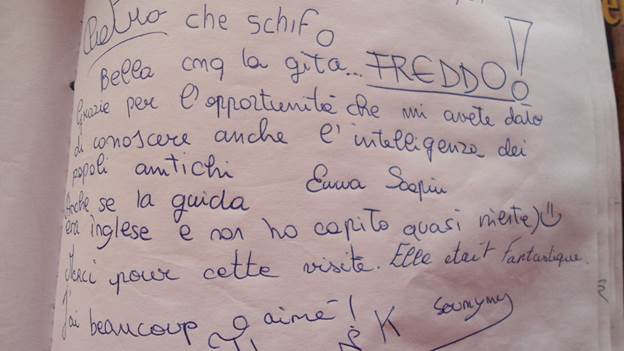 Pietro che schifo
Bella cmq la gita... FREDDO!
Grazie per l'opportunità che mi avete dato
di conoscere anche l'intelligenza dei
popoli antichi Emma
Anche se la guida
era inglese e non ho capito quasi niente)
Merci pour cette visite. Elle était Fantastique.
J'ai beaucoup aimé!
K